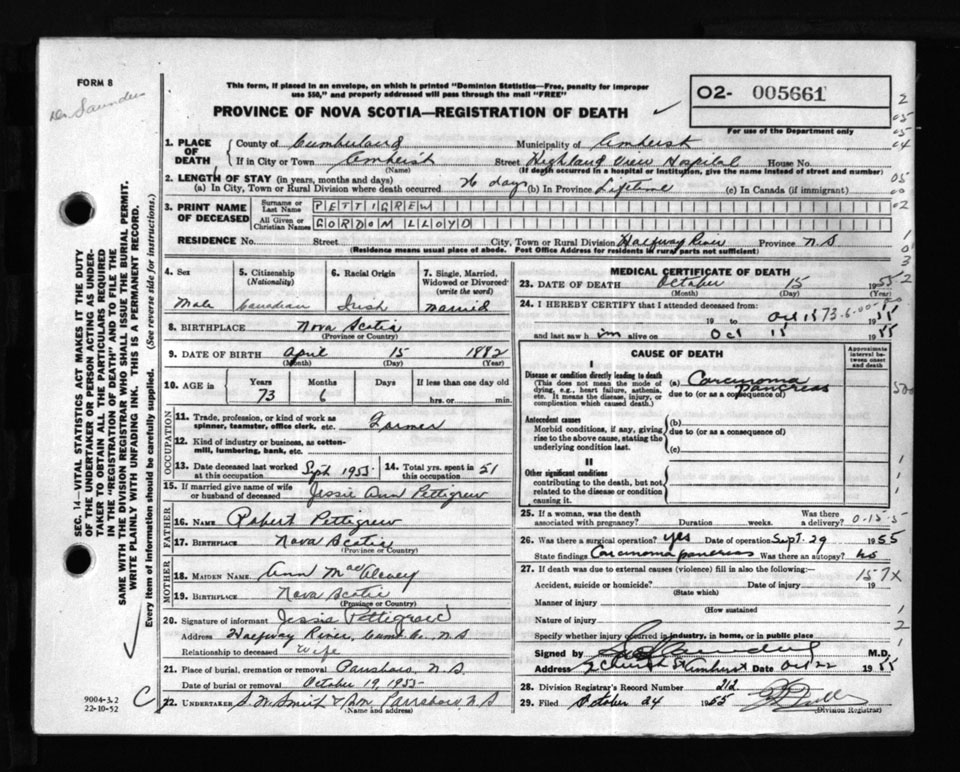 FORM 8
Dr. Saunders
This form, if placed in an envelope, on which is printed "Dominion Statistics—Free, penalty for improper
use $50," and properly addressed will pass through the mail "FREE"
PROVINCE OF NOVA SCOTIA—REGISTRATION OF DEATH
O2- 005661
For use of the Department only
1. PLACE OF DEATH County of Cumberland Municipality of Amherst
If in City or Town Amherst Street Highland View Hospital House No.
(Name) (If death occurred in a hospital or institution, give the name instead of street and number)
2. LENGTH OF STAY (in years, months and days)
(a) In City, Town or Rural Division where death occurred 26 days (b) In Province Lifetime (c) In Canada (if immigrant)
3. PRINT NAME OF DECEASED Surname or Last Name PETTIGREW
All Given or Christian Names GORDON LLOYD
RESIDENCE No. Street City, Town or Rural Division Halfway River Province N.S.
(Residence means usual place of abode. Post Office Address for residents in rural parts not sufficient)
4. Sex Male
5. Citizenship (Nationality) Canadian
6. Racial Origin Irish
7. Single, Married, Widowed or Divorced (write the word) Married
8. BIRTHPLACE Nova Scotia
(Province or Country)
9. DATE OF BIRTH April 15 1882
(Month) (Day) (Year)
10. AGE in Years 73 Months 6 Days If less than one day old hrs. or min.
OCCUPATION
11. Trade, profession, or kind of work as spinner, teamster, office clerk, etc. Farmer
12. Kind of industry or business, as cotten-mill, lumbering, bank, etc.
13. Date deceased last worked at this occupation Sept 1953
14. Total yrs. spent in this occupation 51
15. If married give name of wife or husband of deceased Jessie Ann Pettigrew
FATHER
16. NAME Robert Pettigrew
17. BIRTHPLACE Nova Scotia
(Province or Country)
MOTHER
18. MAIDEN NAME Ann Mac
19. BIRTHPLACE Nova Scotia
(Province or Country)
20. Signature of informant Jessie Pettigrew
Address Halfway River, Cumb. Co., N.S
Relationship to deceased Wife
21. Place of burial, cremation or removal Parrsboro, N.S.
Date of burial or removal October 19, 1955
22. UNDERTAKER Smith & Son Parrsboro, N S
(Name and address)
MEDICAL CERTIFICATE OF DEATH
23. DATE OF DEATH October 15 1955
(Month) (Day) (Year)
24. I HEREBY CERTIFY that I attended deceased from:
19 to Oct 15 1955
73-6-00
and last saw him alive on Oct 15 1955
CAUSE OF DEATH
Approximate interval between onset and death
I
Disease or condition directly leading to death (a) Carcinoma pancreas
(This does not mean the mode of dying, e.g., heart failure, asthenia, etc. It means the disease, injury, or complication which caused death.)
due to (or as a consequence of)
Antecedent causes
Morbid conditions, if any, giving rise to the above cause, stating the underlying condition last.
(b)
due to (or as a consequence of)
(c)
II
Other significant conditions
contributing to the death, but not related to the disease or condition causing it.
25. If a woman, was the death associated with pregnancy? Duration weeks. Was there a delivery? 0-15-5
26. Was there a surgical operation? yes Date of operation Sept. 29 1955
State findings Carcinoma pancreas Was there an autopsy? no
27. If death was due to external causes (violence) fill in also the following:— 157X
Accident, suicide or homicide? Date of injury 19
(State which)
Manner of injury
(How sustained
Nature of injury
Specify whether injury occurred in industry, in home, or in public place
Signed by Saunders M.D.
Address Church St Amherst Date Oct 22 1955
28. Division Registrar's Record Number 212
29. Filed October 24 1955
(Division Registrar)
SEC. 14—VITAL STATISTICS ACT MAKES IT THE DUTY
OF THE UNDERTAKER OR PERSON ACTING AS UNDER-
TAKER TO OBTAIN ALL THE PARTICULARS REQUIRED
IN THE "REGISTRATION OF DEATH" AND TO FILE THE
SAME WITH THE DIVISION REGISTRAR WHO SHALL ISSUE THE BURIAL PERMIT.
WRITE PLAINLY WITH UNFADING INK. THIS IS A PERMANENT RECORD.
Every item of information should be carefully supplied. (See reverse side for instructions.)
9004-3.2
22-10-52
C